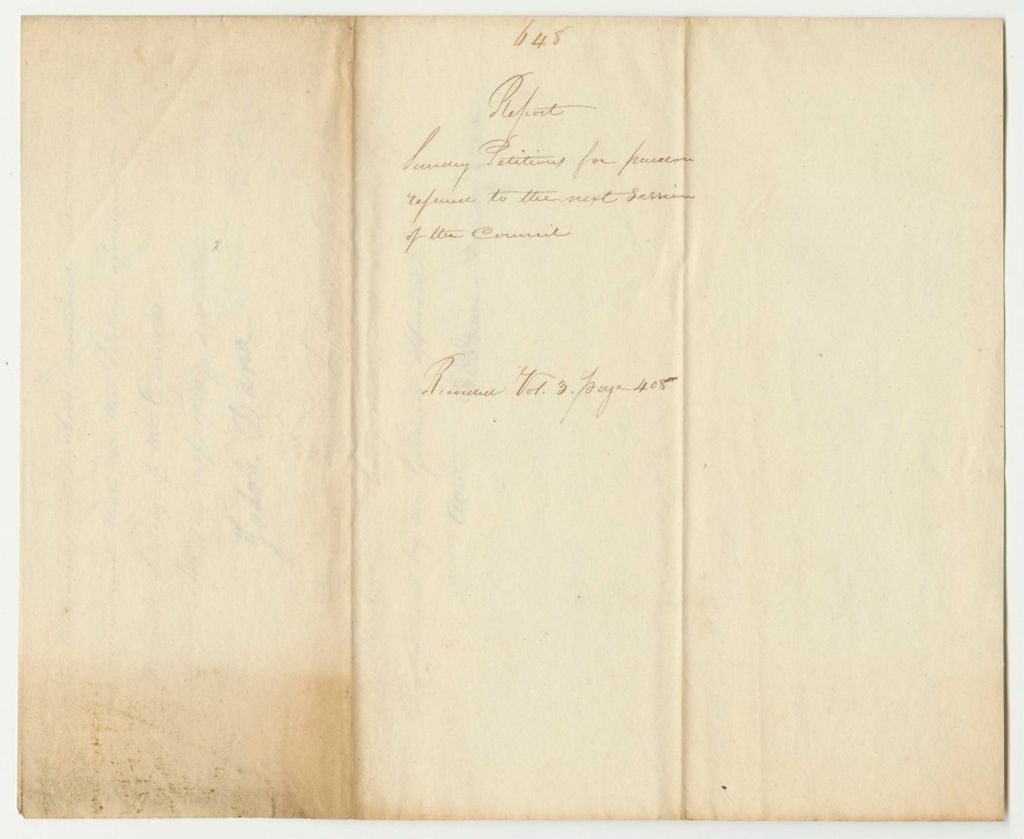 648
Report
Sundry Petitions for pardon
referred to the next Session
of the Council
Recorded Vol. 3. page 408